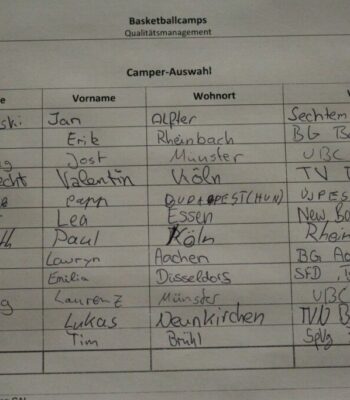 Basketballcamps
Qualitätsmanagement
Camper-Auswahl
e Vorname Wohnort V
ski Jan Alfter Sechtem
Erik Rheinbach BG B
g Jost Münster UBC
echt Valentin Köln TV T
e BUDAPEST (HUN) UJPES
t Lea Essen New Ba
th Paul Köln Rhein
Lauryn Aachen BG Aa
Emilia Düsseldorf SFD
g Laurenz Münster UBC
Lukas Neunkirchen TVN B
Tim Brühl SpVg